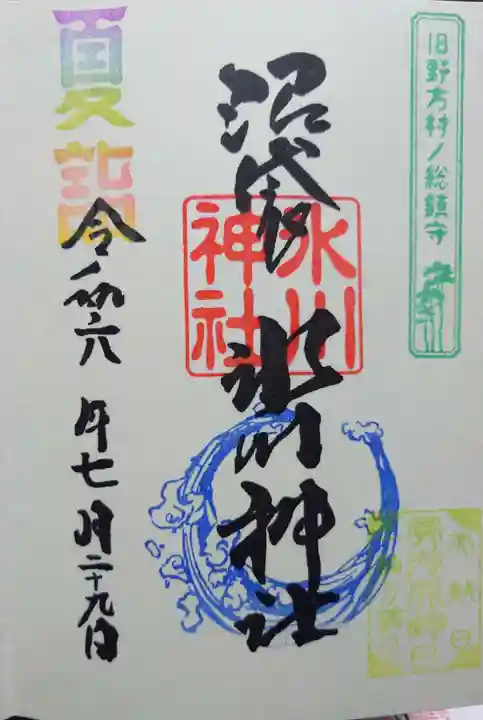 旧野方村ノ総鎮守
沼袋
氷川神社
氷川
神社
夏詣
令和六年七月二十九日